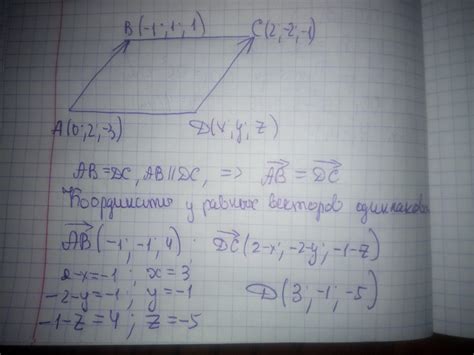 B(-1; 1; 1) C(2; -2; -1)
A(0; 2; -3) D(x; y; z)
AB=DC, AB||DC, => AB = DC
Координаты у равных векторов одинаковы
AB(-1; -1; 4); DC(2-x; -2-y; -1-z)
2-x=-1; x=3
-2-y=-1; y=-1 D(3; -1; -5)
-1-z=4; z=-5